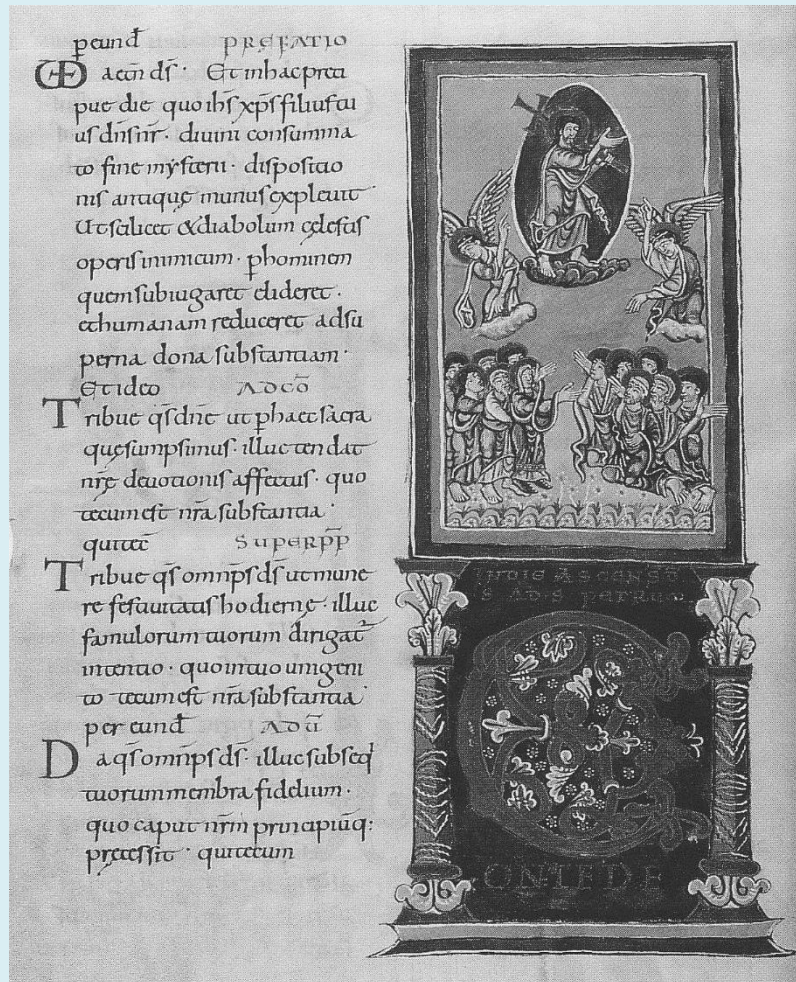 peund̄ PREFATIO
VD aecn ds̄· Et inhac preci
pue die quo ihs̄ xps̄ filiuſ tu
uſ dn̄ſ nr̄· divini consumma
to fine myſterii· dispositio
niſ antiquę munuſ explevit·
Ut scilicet & diabolum cęleſtiſ
operiſ inimicum· p̄ hominem
quem subiugaret elideret·
et humanam reduceret ad su
perna dona substantiam·
Et ideo AD CŌ
Tribue qs̄ dn̄e ut p̄ haec sacra
quę sumpsimus· illuc tendat
nr̄ę devotionis affectus· quo
tecum est nr̄a substantia·
qui tec̄ SUPER PP̄
Tribue qs̄ omnip̄s ds̄ ut mune
re festivitatis hodiernę· illuc
famulorum tuorum dirigat̄
intentio· quo in tuo unigeni
to tecum est nr̄a substantia·
per eund̄ AD Ū
Da qs̄ omnip̄s ds̄· illuc subseq̄
tuorum membra fidelium·
quo caput nr̄m principiūq:
pręcessit· qui tecum
IN DIE ASCENSĒ
S AD S PETRUM
C
ONCEDE